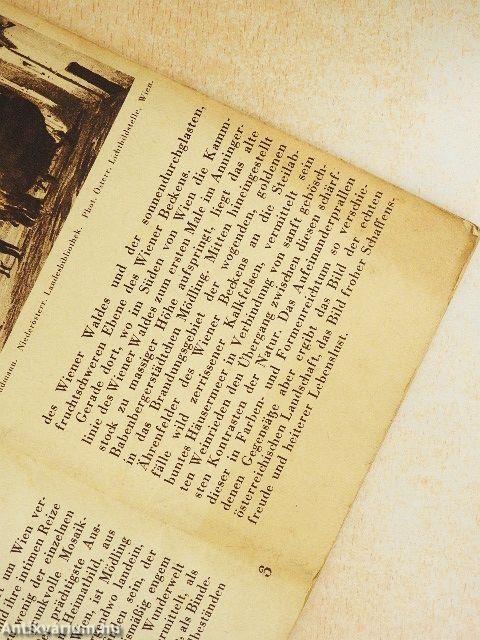 Niederösterr. Landesbibliothek. Phot. Österr. Lichtbildstelle, Wien.
des Wiener Waldes und der sonnendurchglasten,
fruchtschweren Ebene des Wiener Beckens.
Gerade dort, wo im Süden von Wien die Kamm-
linie des Wiener Waldes zum ersten Male im Anninger-
stock zu massiger Höhe aufspringt, liegt das alte
Babenbergerstädtchen Mödling. Mitten hineingestellt
in das Brandungsgebiet der wogenden, goldenen
Ährenfelder des Wiener Beckens an die Steilab-
fälle wild zerrissener Kalkfelsen, vermittelt sein
buntes Häusermeer in Verbindung von sanft gebösch-
ten Weinrieden den Übergang zwischen diesen schärf-
sten Kontrasten der Natur. Das Aufeinanderprallen
dieser in Farben- und Formenreichtum so verschie-
denen Gegensätze aber ergibt das Bild der echten
österreichischen Landschaft, das Bild froher Schaffens-
freude und heiterer Lebenslust.
3
um Wien ver-
d ihre intimen Reize
wenig der einzelnen
unvolle Mosaik-
prächtigste Aus-
eimatbild, aus
en, ist Mödling
ndwo landein,
en sein, der
smäßig engem
Wunderwelt
ermittelt, als
als Binde-
beständen
Antikvarium.hu